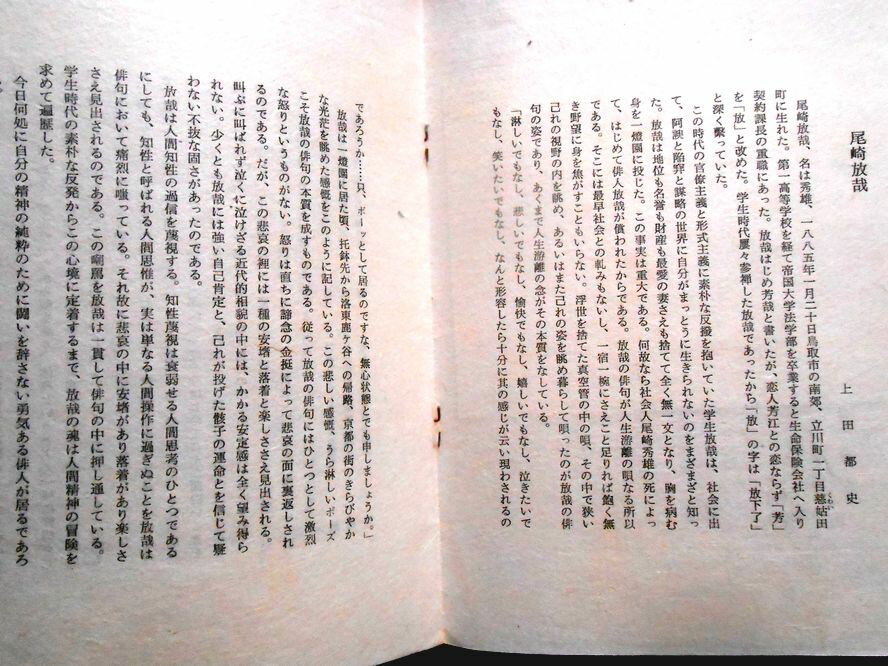 尾崎放哉
上田都史
尾崎放哉、名は秀雄、一八八五年一月二十日鳥取市の南郊、立川町二丁目慈姑田
くわい
町に生れた。第一高等学校を経て帝国大学法学部を卒業すると生命保険会社へ入り
契約課長の重職にあった。放哉はじめ芳哉と書いたが、恋人芳江との恋ならず「芳」
を「放」と改めた。学生時代屡々参禅した放哉であったから「放」の字は「放下了」
と深く繫っていた。
この時代の官僚主義と形式主義に素朴な反撥を抱いていた学生放哉は、社会に出
て、阿諛と陥穽と謀略の世界に自分がまっとうに生きられないのをまざまざと知っ
た。放哉は地位も名誉も財産も最愛の妻さえも捨てて全く無一文となり、胸を病む
身を一燈園に投じた。この事実は重大である。何故なら社会人尾崎秀雄の死によっ
て、はじめて俳人放哉が償われたからである。放哉の俳句が人生游離の唄なる所以
である。そこには最早社会との軋みもないし、一宿一椀にさえこと足りれば飽く無
き野望に身を焦がすこともいらない。浮世を捨てた真空管の中の唄、その中で狭い
己れの視野の内を眺め、あるいはまた己れの姿を眺め暮らして唄ったのが放哉の俳
句の姿であり、あくまで人生游離の念がその本質をなしている。
「淋しいでもなし、悲しいでもなし、愉快でもなし、嬉しいでもなし、泣きたいで
もなし、笑いたいでもなし、なんと形容したら十分に其の感じが云い現わされるの
であろうか……只、ボーッとして居るのですな、無心状態とでも申しましょうか。」
放哉は一燈園に居た頃、托鉢先から洛東鹿ヶ谷への帰路、京都の街のきらびやか
な光茫を眺めた感慨をこのように記している。この悲しい感慨、うら淋しいポーズ
こそ放哉の俳句の本質を成すものである。従って放哉の俳句にはひとつとして激烈
な怒りというものがない。怒りは直ちに諦念の金挺によって悲哀の面に裏返しされ
るのである。だが、この悲哀の裡には一種の安堵と落着と楽しささえ見出される。
叫ぶに叫ばれず泣くに泣けざる近代的相貌の中には、かかる安定感は全く望み得ら
れない。少くとも放哉には強い自己肯定と、己れが投げた骰子の運命とを信じて疑
わない不抜な固さがあったのである。
放哉は人間知性の過信を蔑視する。知性蔑視は衰弱せる人間思考のひとつである
にしても、知性と呼ばれる人間思惟が、実は単なる人間操作に過ぎぬことを放哉は
俳句において痛烈に嗤っている。それ故に悲哀の中に安堵があり落着があり楽しさ
さえ見出されるのである。この嘲罵を放哉は一貫して俳句の中に押し通している。
学生時代の素朴な反発からこの心境に定着するまで、放哉の魂は人間精神の冒険を
求めて遍歴した。
今日何処に自分の精神の純粋のために闘いを辞さない勇気ある俳人が居るであろ